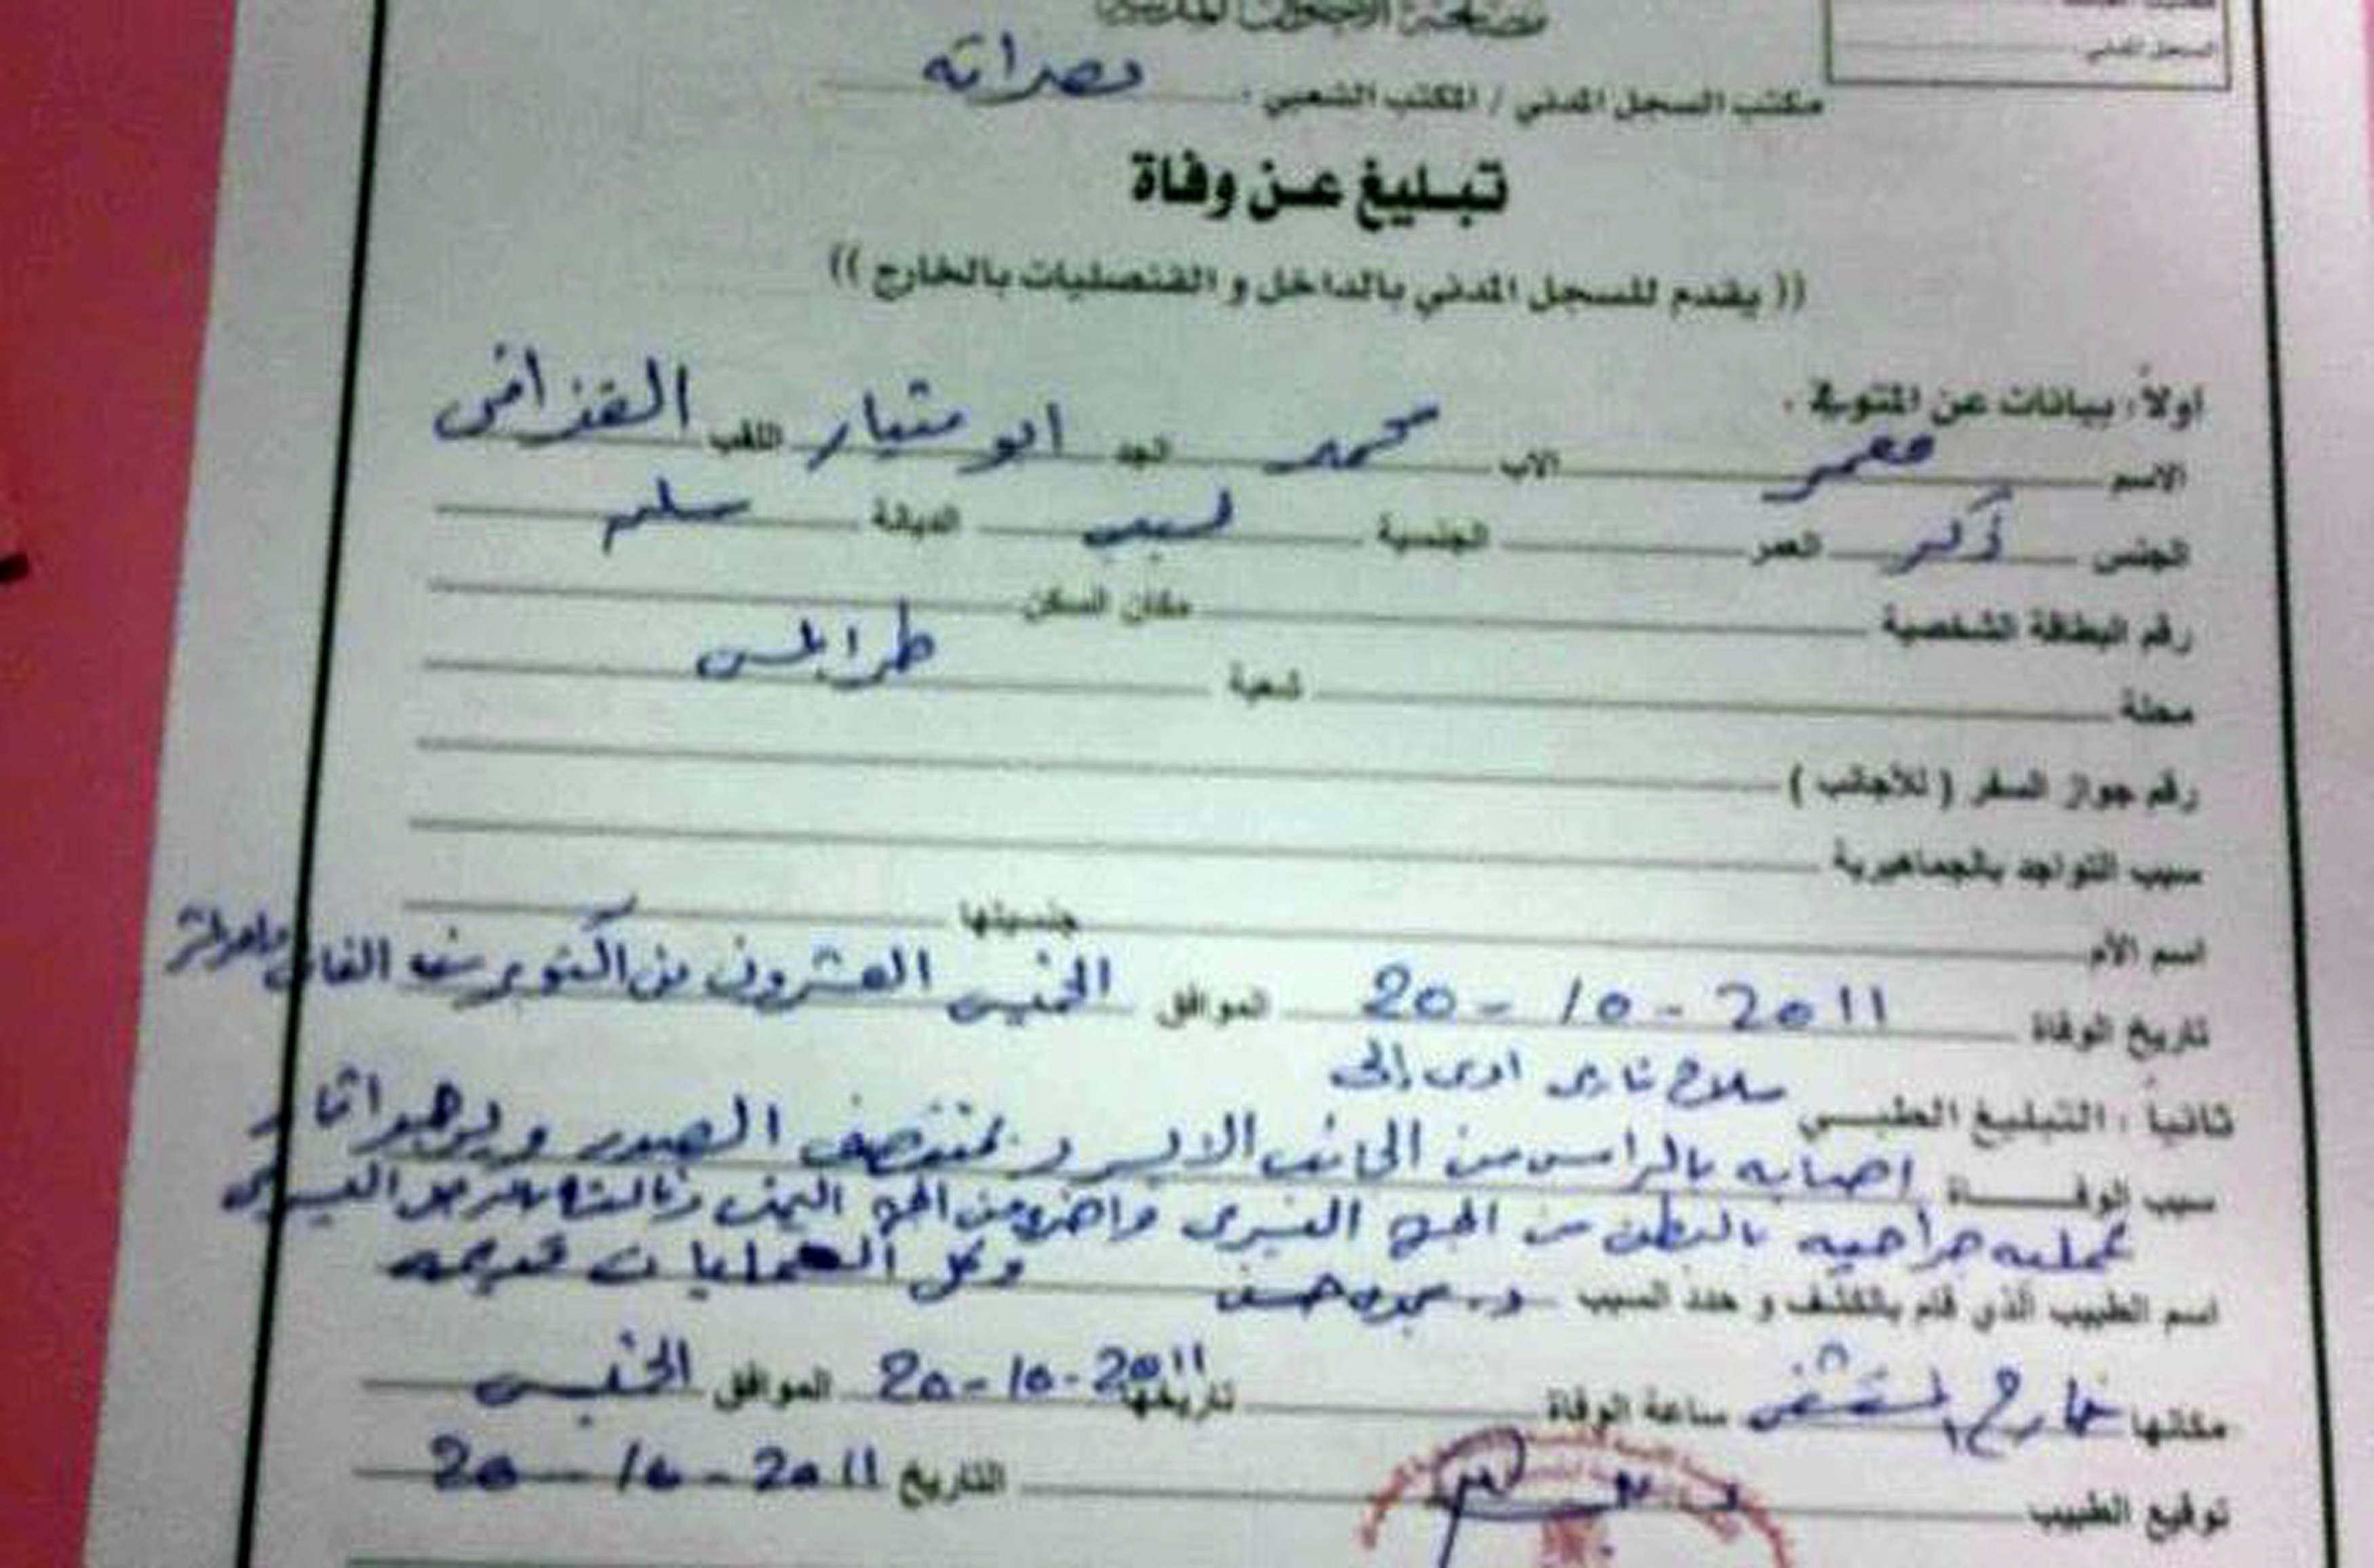 مصلحة الأحوال المدنية
السجل المدني
مكتب السجل المدني / المكتب الشعبي : مصراته
تبليغ عن وفاة
(( يقدم للسجل المدني بالداخل و القنصليات بالخارج ))
اولاً : بيانات عن المتوفي .
الاسم معمر الاب محمد الجد ابو منيار اللقب القذافى
الجنس ذكر العمر الجنسية ليبى الديانة مسلم
رقم البطاقة الشخصية مكان السكن
محلة شعبية طرابلس
رقم جواز السفر ( للأجانب )
سبب التواجد بالجماهيرية
اسم الأم جنسيتها
تاريخ الوفاة 20 - 10 - 2011 الموافق الخميس العشرون من اكتوبر سنة
ثانياً : التبليغ الطبـي سلاح نارى ادى إلى
سبب الوفـاة اصابه بالراس من الجانب الايسر و بمنتصف الصدر ويوجد اثار
عمليه جراحيه بالبطن من الجهه اليسرى واخرى من الجهه اليمنى
اسم الطبيب الذي قام بالكشف و حدد السبب د. وكل العمليات قديمه
مكانها خارج المستشفى ساعة الوفاة تاريخها 20-10-2011 الموافق الخميس
توقيع الطبيب التاريخ 20 - 10 - 2011